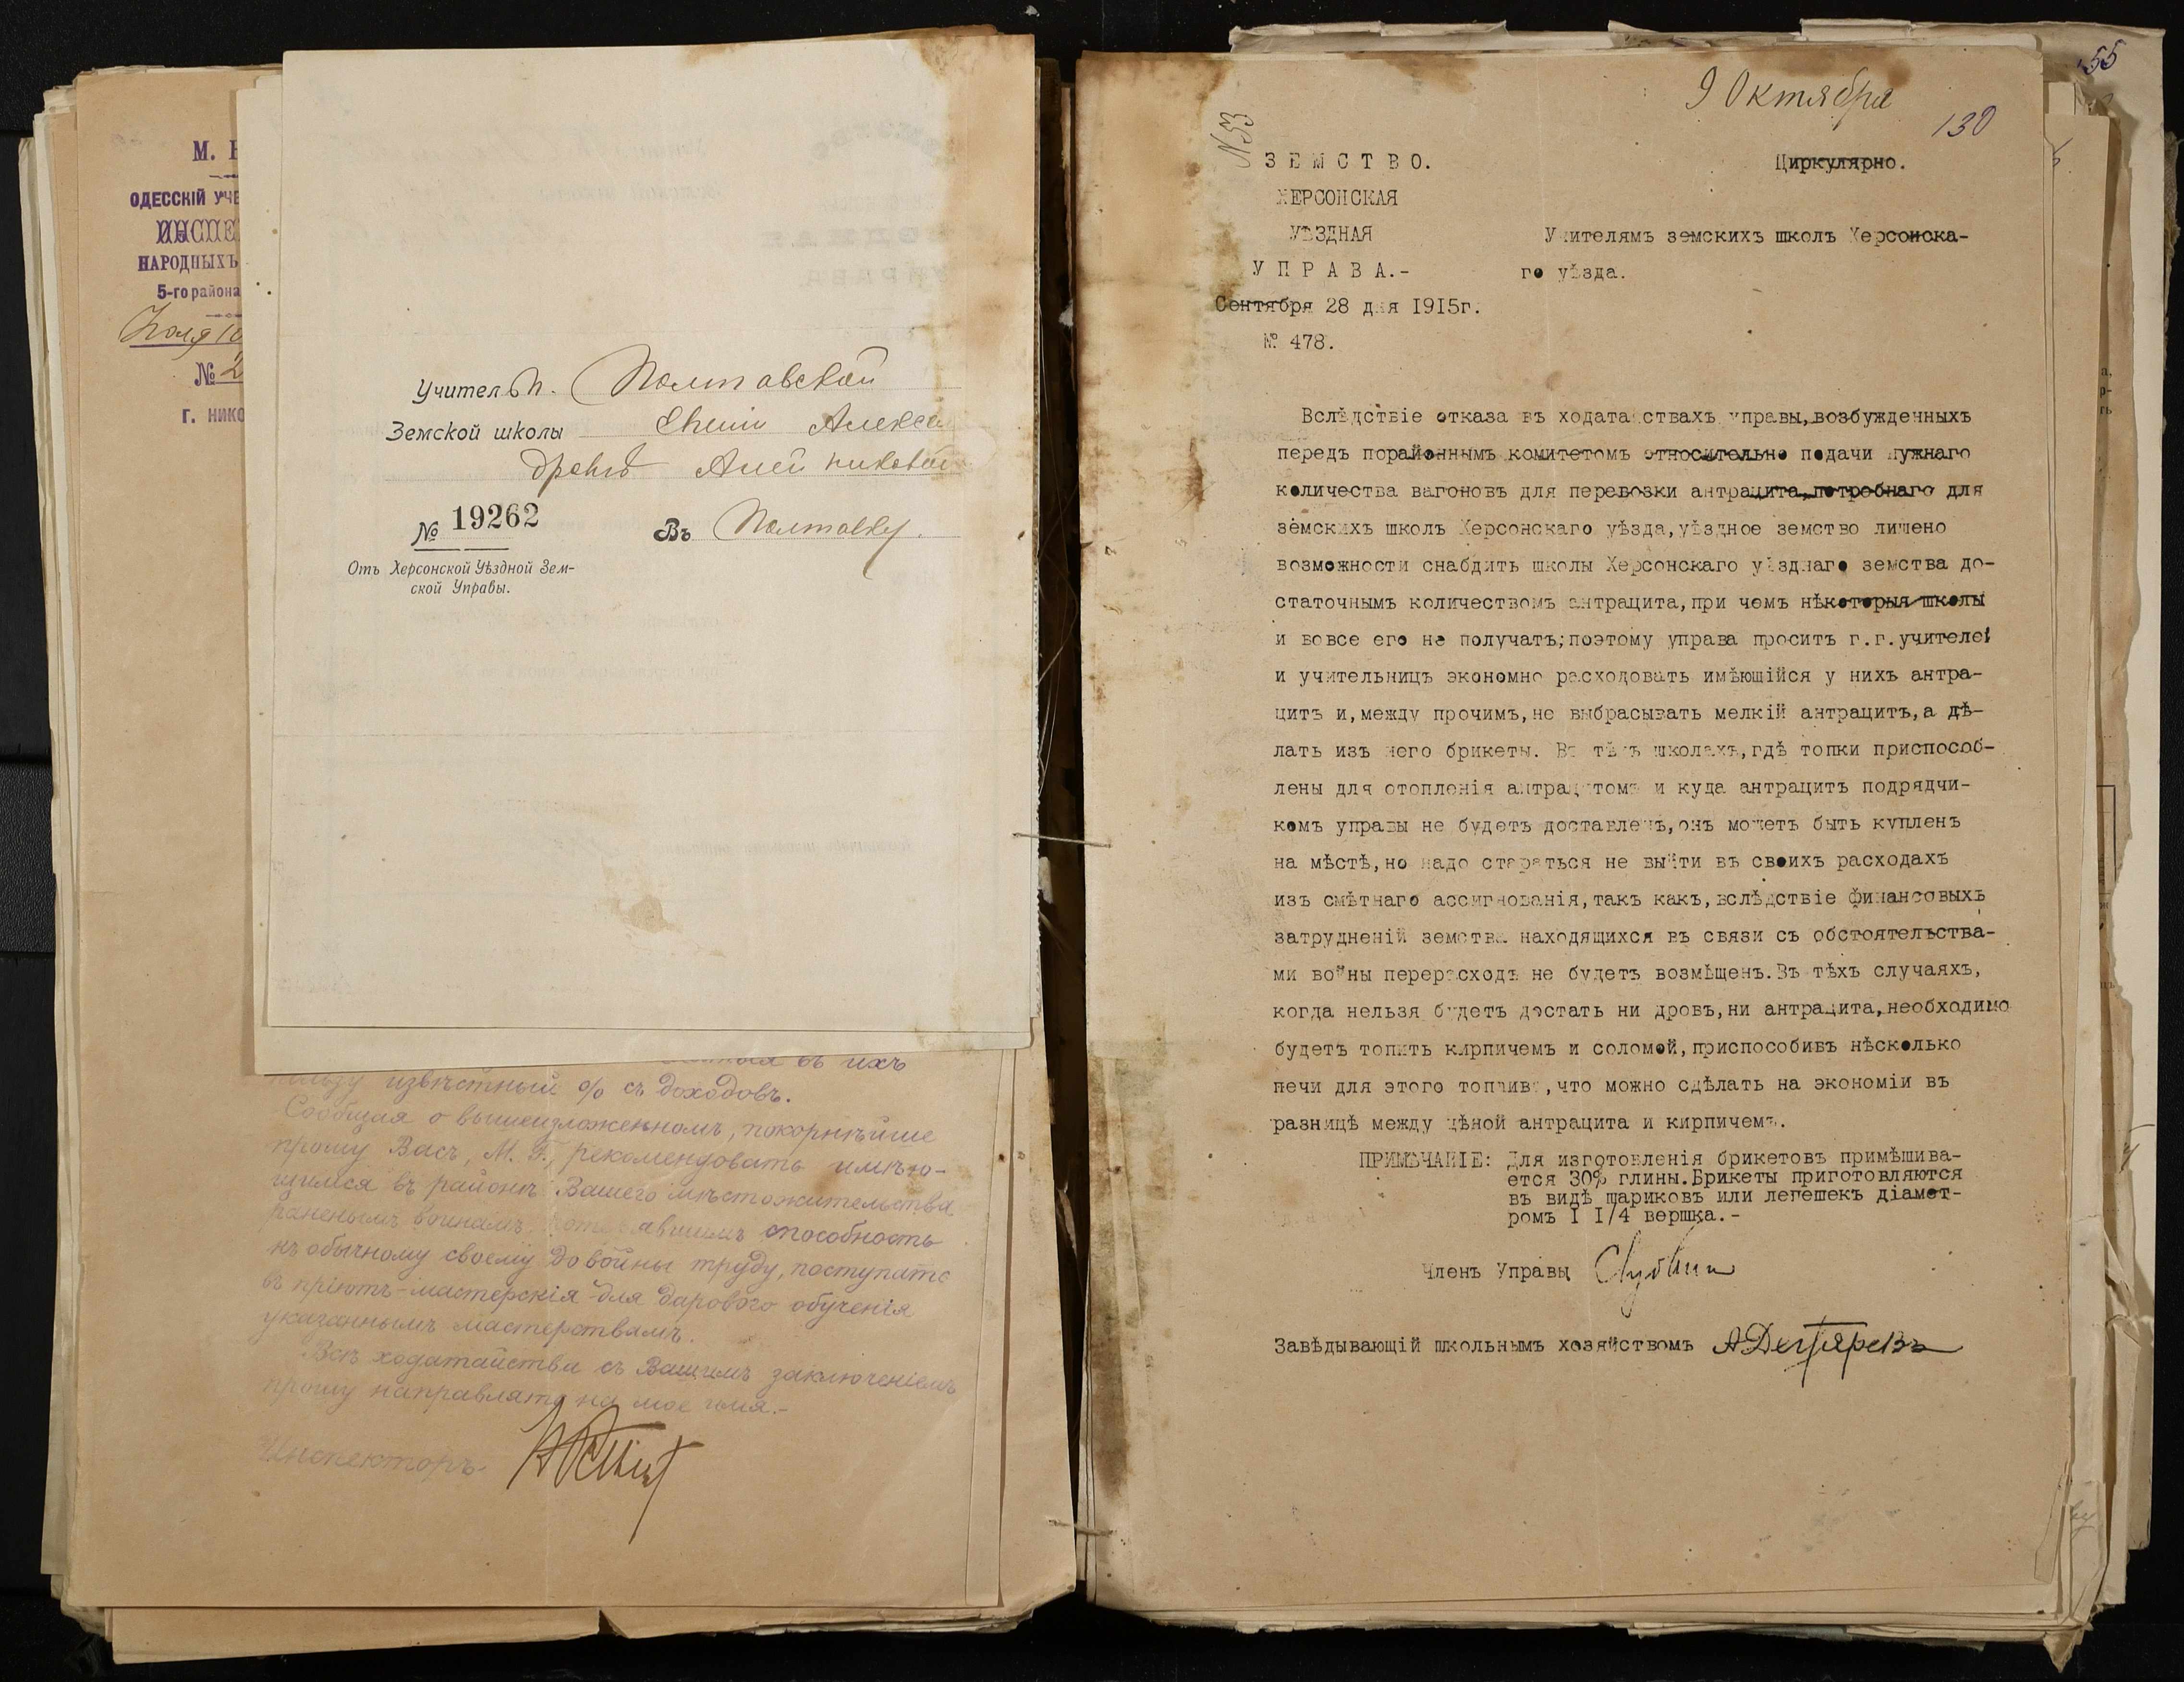 М.
ОДЕССКІЙ УЧЕ
ИНСПЕ
НАРОДНЫХЪ
5-го района
№ 2
Г. НИКО
УчителЬн. Полтавской
Земской школы Евгеніи Алекса
дровнѣ
№ 19262 Въ Полтавку.
Отъ Херсонской Уѣздной Зем-
ской Управы.
въ ихъ
пользу извѣстный % съ доходовъ.
Сообщая о вышеизложенномъ, покорнѣйше
прошу Васъ, М. Г., рекомендовать имѣю-
щимся въ районѣ Вашего мѣстожительства
раненымъ воинамъ, потерявшимъ способность
къ обычному своему до войны труду, поступать
въ пріютъ-мастерскія для дарового обученія
указаннымъ мастерствамъ.
Всѣ ходатайства съ Вашимъ заключеніемъ
прошу направлять на мое имя.-
Инспекторъ
55
9 Октября
130
№53
ЗЕМСТВО.
Циркулярно.
ХЕРСОНСКАЯ
УѢЗДНАЯ
Учителямъ земскихъ школъ Херсонска-
УПРАВА.-
го уѣзда.
Сентября 28 дня 1915г.
№ 478.
Вслѣдствіе отказа въ ходатайствахъ управы, возбужденныхъ
передъ порайоннымъ комитетомъ относительно подачи нужнаго
количества вагоновъ для перевозки антрацита, потребнаго для
земскихъ школъ Херсонскаго уѣзда, уѣздное земство лишено
возможности снабдить школы Херсонскаго уѣзднаго земства до-
статочнымъ количествомъ антрацита, при чемъ нѣкоторыя школы
и вовсе его не получатъ; поэтому управа проситъ г.г. учителей
и учительницъ экономно расходовать имѣющійся у нихъ антра-
цитъ и, между прочимъ, не выбрасывать мелкій антрацитъ, а дѣ-
лать изъ него брикеты. Въ тѣхъ школахъ, гдѣ топки приспособ-
лены для отопленія антрацитомъ и куда антрацитъ подрядчи-
комъ управы не будетъ доставленъ, онъ можетъ быть купленъ
на мѣстѣ, но надо стараться не выйти въ своихъ расходахъ
изъ смѣтнаго ассигнованія, такъ какъ, вслѣдствіе финансовыхъ
затрудненій земства находящихся въ связи съ обстоятельства-
ми войны перерасходъ не будетъ возмѣщенъ. Въ тѣхъ случаяхъ,
когда нельзя будетъ достать ни дровъ, ни антрацита, необходимо
будетъ топить кирпичемъ и соломой, приспособивъ нѣсколько
печи для этого топлива, что можно сдѣлать на экономіи въ
разницѣ между цѣной антрацита и кирпичемъ.
ПРИМѢЧАНІЕ: Для изготовленія брикетовъ примѣшива-
ется 30% глины. Брикеты приготовляются
въ видѣ шариковъ или лепешекъ діамет-
ромъ I I/4 вершка.-
Членъ Управы
Завѣдывающій школьнымъ хозяйствомъ АДегтяревъ